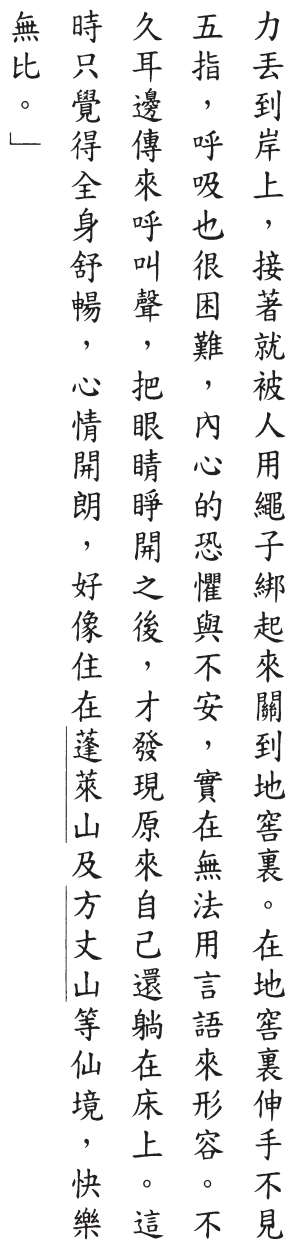 力丟到岸上，接著就被人用繩子綁起來關到地窖裏。在地窖裏伸手不見
五指，呼吸也很困難，內心的恐懼與不安，實在無法用言語來形容。不
久耳邊傳來呼叫聲，把眼睛睜開之後，才發現原來自己還躺在床上。這
時只覺得全身舒暢，心情開朗，好像住在蓬萊山及方丈山等仙境，快樂
無比。」